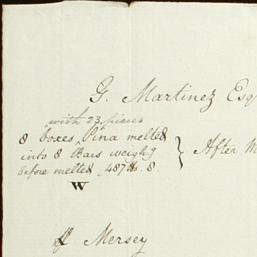 G. Martinez Esq
with 23 pieces
8 boxes Pina melted
into 8 Bars weighg
before melted 487 lb. 8.
} After M
W
Mersey